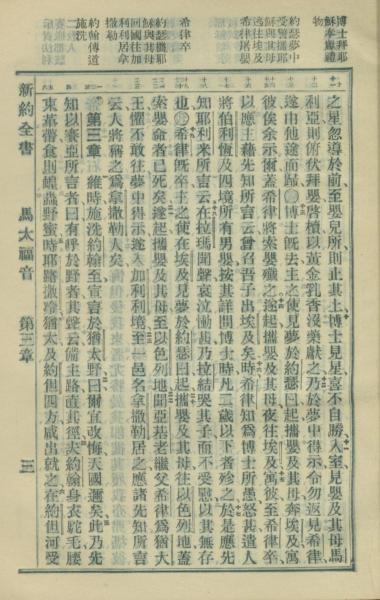 博士拜耶
穌奉厥禮
物
約瑟夢中
受警攜耶
穌與其母
逃往埃及
希律屠嬰
希律卒
約瑟攜耶
穌與其母
回國往加
利利居拿
撒勒
約翰傳道
施洗
之星忽導於前至嬰兒所則止其上博士見星喜不自勝入室見嬰及其母馬
利亞則俯伏拜嬰啓櫝以黃金乳香沒藥獻之乃於夢中得示令勿返見希律
遂由他途而歸〇博士旣去主之使見夢於約瑟曰起攜嬰及其母奔埃及寓
彼俟余示爾蓋希律將索嬰殲之遂起攜嬰及其母夜往埃及寓彼至希律卒
以應主藉先知所言云曾召吾子出埃及矣時希律知爲博士所愚怒甚遣人
將伯利恆及四境所有男嬰按其詳問博士時凡二歲以下者殄之於是應先
知耶利米所言云在拉瑪聞聲哀泣慟甚乃拉結哭其子而不受慰以其無存
也〇希律旣卒主之使在埃及見夢於約瑟曰起攜嬰及其母往以色列地蓋
索嬰命者已死矣遂起攜嬰及其母至以色列地聞亞基老繼父希律爲猶大
王懼不敢往夢中得示遂入加利利境至一邑名拿撒勒居之應諸先知所言
云人將稱之爲拿撒勒人矣
第三章 維時施洗約翰至宣言於猶太野曰爾宜改悔天國邇矣此乃先
知以賽亞所言者曰有呼於野者其聲云備主路直其徑夫約翰身衣駝毛腰
束革帶食則蝗蟲野蜜時耶路撒冷猶太及約但四方咸出就之在約但河受
新約全書 馬太福音 第三章 三